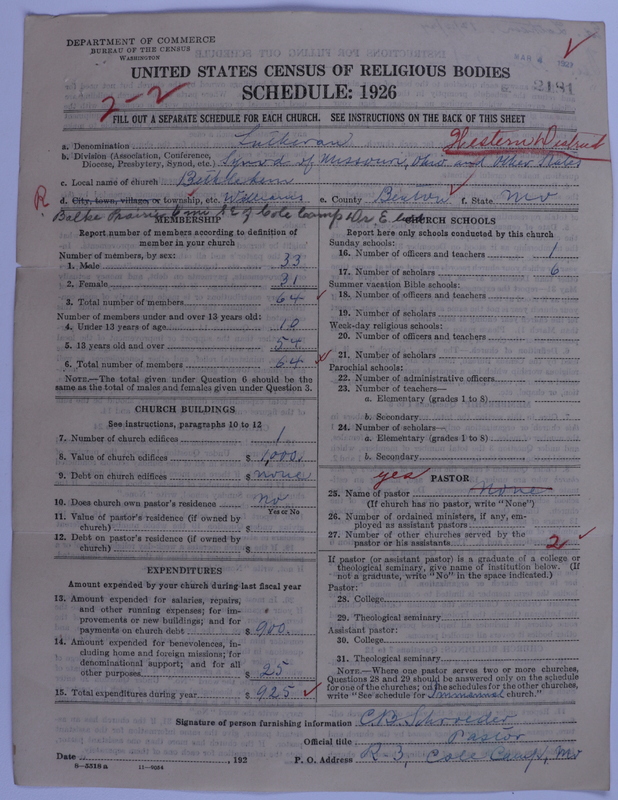 DEPARTMENT OF COMMERCE
BUREAU OF THE CENSUS
WASHINGTON
2181
UNITED STATES CENSUS OF RELIGIOUS BODIES
SCHEDULE: 1926
2-2
FILL OUT A SEPARATE SCHEDULE FOR EACH CHURCH. SEE INSTRUCTIONS ON THE BACK OF THIS SHEET
a. Denomination Lutheran Western District
b. Division (Association, Conference, Diocese, Presbytery, Synod, etc.) Synod of Missouri, Ohio and Other States
c. Local name of church Bethlehem
R d. City, town, village, or township, etc. Williams e. County Benton f. State Mo
Cole Camp
MEMBERSHIP
Report number of members according to definition of
member in your church
Number of members, by sex:
1. Male 33
2. Female 31
3. Total number of members 64
Number of members under and over 13 years old:
4. Under 13 years of age 10
5. 13 years old and over 54
6. Total number of members 64
NOTE.—The total given under Question 6 should be
same as the total of males and females given under Question 3.
CHURCH BUILDINGS
See instructions, paragraphs 10 to 12
7. Number of church edifices 1
8. Value of church edifices $ 1,000.
9. Debt on church edifices $ none
10. Does church own pastor's residence no
Yes or No
11. Value of pastor's residence (if owned by
church) $
12. Debt on pastor's residence (if owned by
church) $
EXPENDITURES
Amount expended by your church during last fiscal year
13. Amount expended for salaries, repairs,
and other running expenses; for im-
provements or new buildings; and for
payments on church debt $ 900.
14. Amount expended for benevolences, in-
cluding home and foreign missions; for
denominational support; and for all
other purposes $ 25
15. Total expenditures during year $ 925
CHURCH SCHOOLS
Report here only schools conducted by this church
Sunday schools:
16. Number of officers and teachers 1
17. Number of scholars 6
Summer vacation Bible schools:
18. Number of officers and teachers
19. Number of scholars
Week-day religious schools:
20. Number of officers and teachers
21. Number of scholars
Parochial schools:
22. Number of administrative officers
23. Number of teachers—
a. Elementary (grades 1 to 8)
b. Secondary
24. Number of scholars—
a. Elementary (grades 1 to 8)
b. Secondary
yes PASTOR
25. Name of pastor None
(If church has no pastor, write "None")
26. Number of ordained ministers, if any, em-
ployed as assistant pastors
27. Number of other churches served by the
pastor or his assistants 2
If pastor (or assistant pastor) is a graduate of a college or
theological seminary, give name of institution below. (If
not a graduate, write "No" in the space indicated.)
Pastor:
28. College
29. Theological seminary
Assistant pastor:
30. College
31. Theological seminary
NOTE.—Where one pastor serves two or more churches,
Questions 28 and 29 should be answered only on the schedule
for one of the churches; on the schedules for the other churches,
write "See schedule for Immanuel church."
Signature of person furnishing information C.B. Schroeder
Official title Pastor
Date , 192 P. O. Address R-3, Cole Camp, Mo
8-5518 a 11-9034